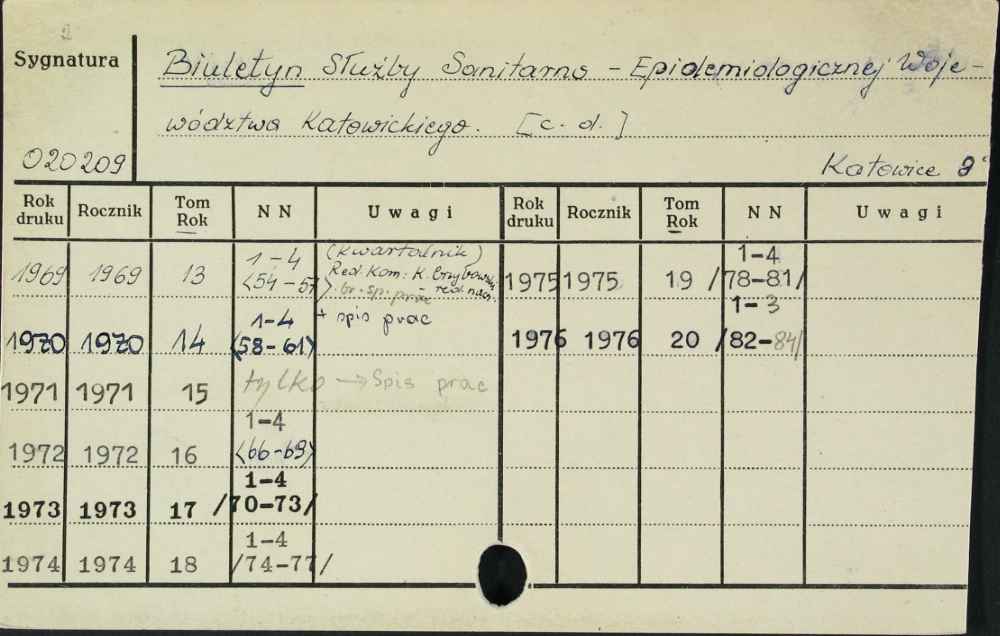 2
Sygnatura
Biuletyn Służby Sanitarno - Epidemiologicznej Woje-
wództwa Katowickiego. [c. d.]
020209
Katowice
Rok druku Rocznik Tom Rok NN Uwagi Rok druku Rocznik Tom Rok NN Uwagi
1969 1969 13 1-4 <54-57> (kwartalnik) Red. Kom: K. - red. nacz. br. sp. prac
1970 1970 14 1-4 (58-61) + spis prac
1971 1971 15 tylko → Spis prac
1972 1972 16 1-4 <66-69>
1973 1973 17 1-4 /70-73/
1974 1974 18 1-4 /74-77/
1975 1975 19 1-4 /78-81/
1976 1976 20 1-3 /82-84/